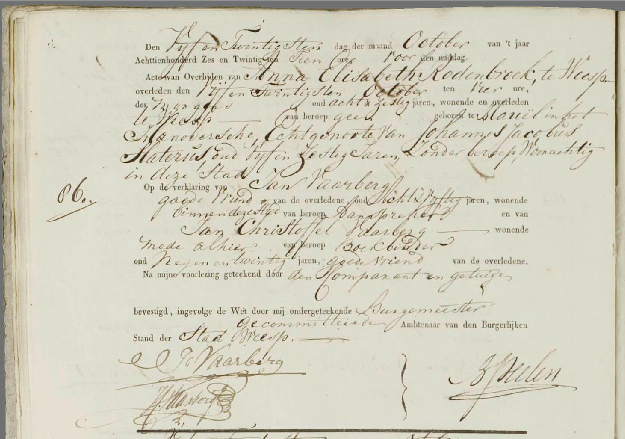 Den Vyf en Twintigsten dag der maand October van 't jaar
Achttienhonderd Zes en Twintig ten Tien ure voor den middag.
Acte van Overlijden van Anna Elisabeth Rodenbroek, te Weesp
overleden den Vyf en Twintigsten October ten Vier ure,
des Morgens oud acht en Zestig jaren, wonende en overleden
te Weesp van beroep geen geboren te in het
Hanoversche, Echtgenoote van Johannes Jacobus
Staterius, oud Vyf en Zestig Jaren, Zonder beroep, Woonachtig
in deze Stad
86.
Op de verklaring van Jan Vaarberg
goede Vriend van de overledene, oud Acht en Vyftig jaren, wonende
binnen deze Stad van beroep en van
Jan Christoffel Vaarberg wonende
mede alhier van beroep Boekbinder
oud Negen en twintig jaren, goede Vriend van de overledene.
Na mijne voorlezing geteekend door den Comparant en getuigen
bevestigd, ingevolge de Wet door mij ondergeteekende Burgemeester
gecommitteerde Ambtenaar van den Burgerlijken
Stand der Stad Weesp.
Vaarberg